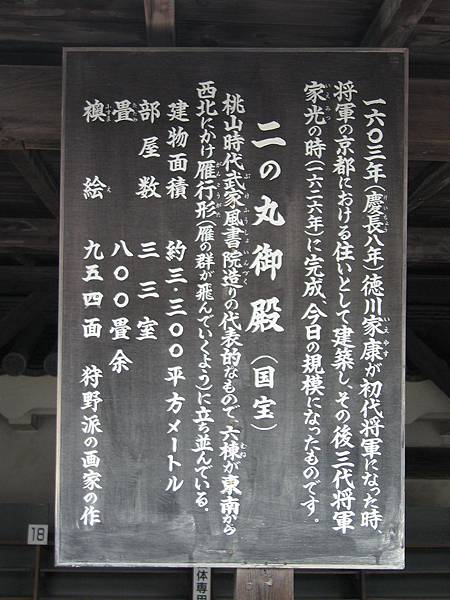 一六〇三年(慶長八年)徳川家康が初代将軍になった時、
将軍の京都における住いとして建築し、その後三代将軍
家光の時(一六二六年)に完成、今日の規模になったものです。
二の丸御殿(国宝)
桃山時代武家風書院造りの代表的なもので、六棟が東南から
西北にかけ雁行形(雁の群が飛んでいくよう)に立ち並んでいる。
建物面積 約三・三〇〇平方メートル
部屋数 三三室
畳 八〇〇畳余
襖絵 九五四面 狩野派の画家の作
18
体専用